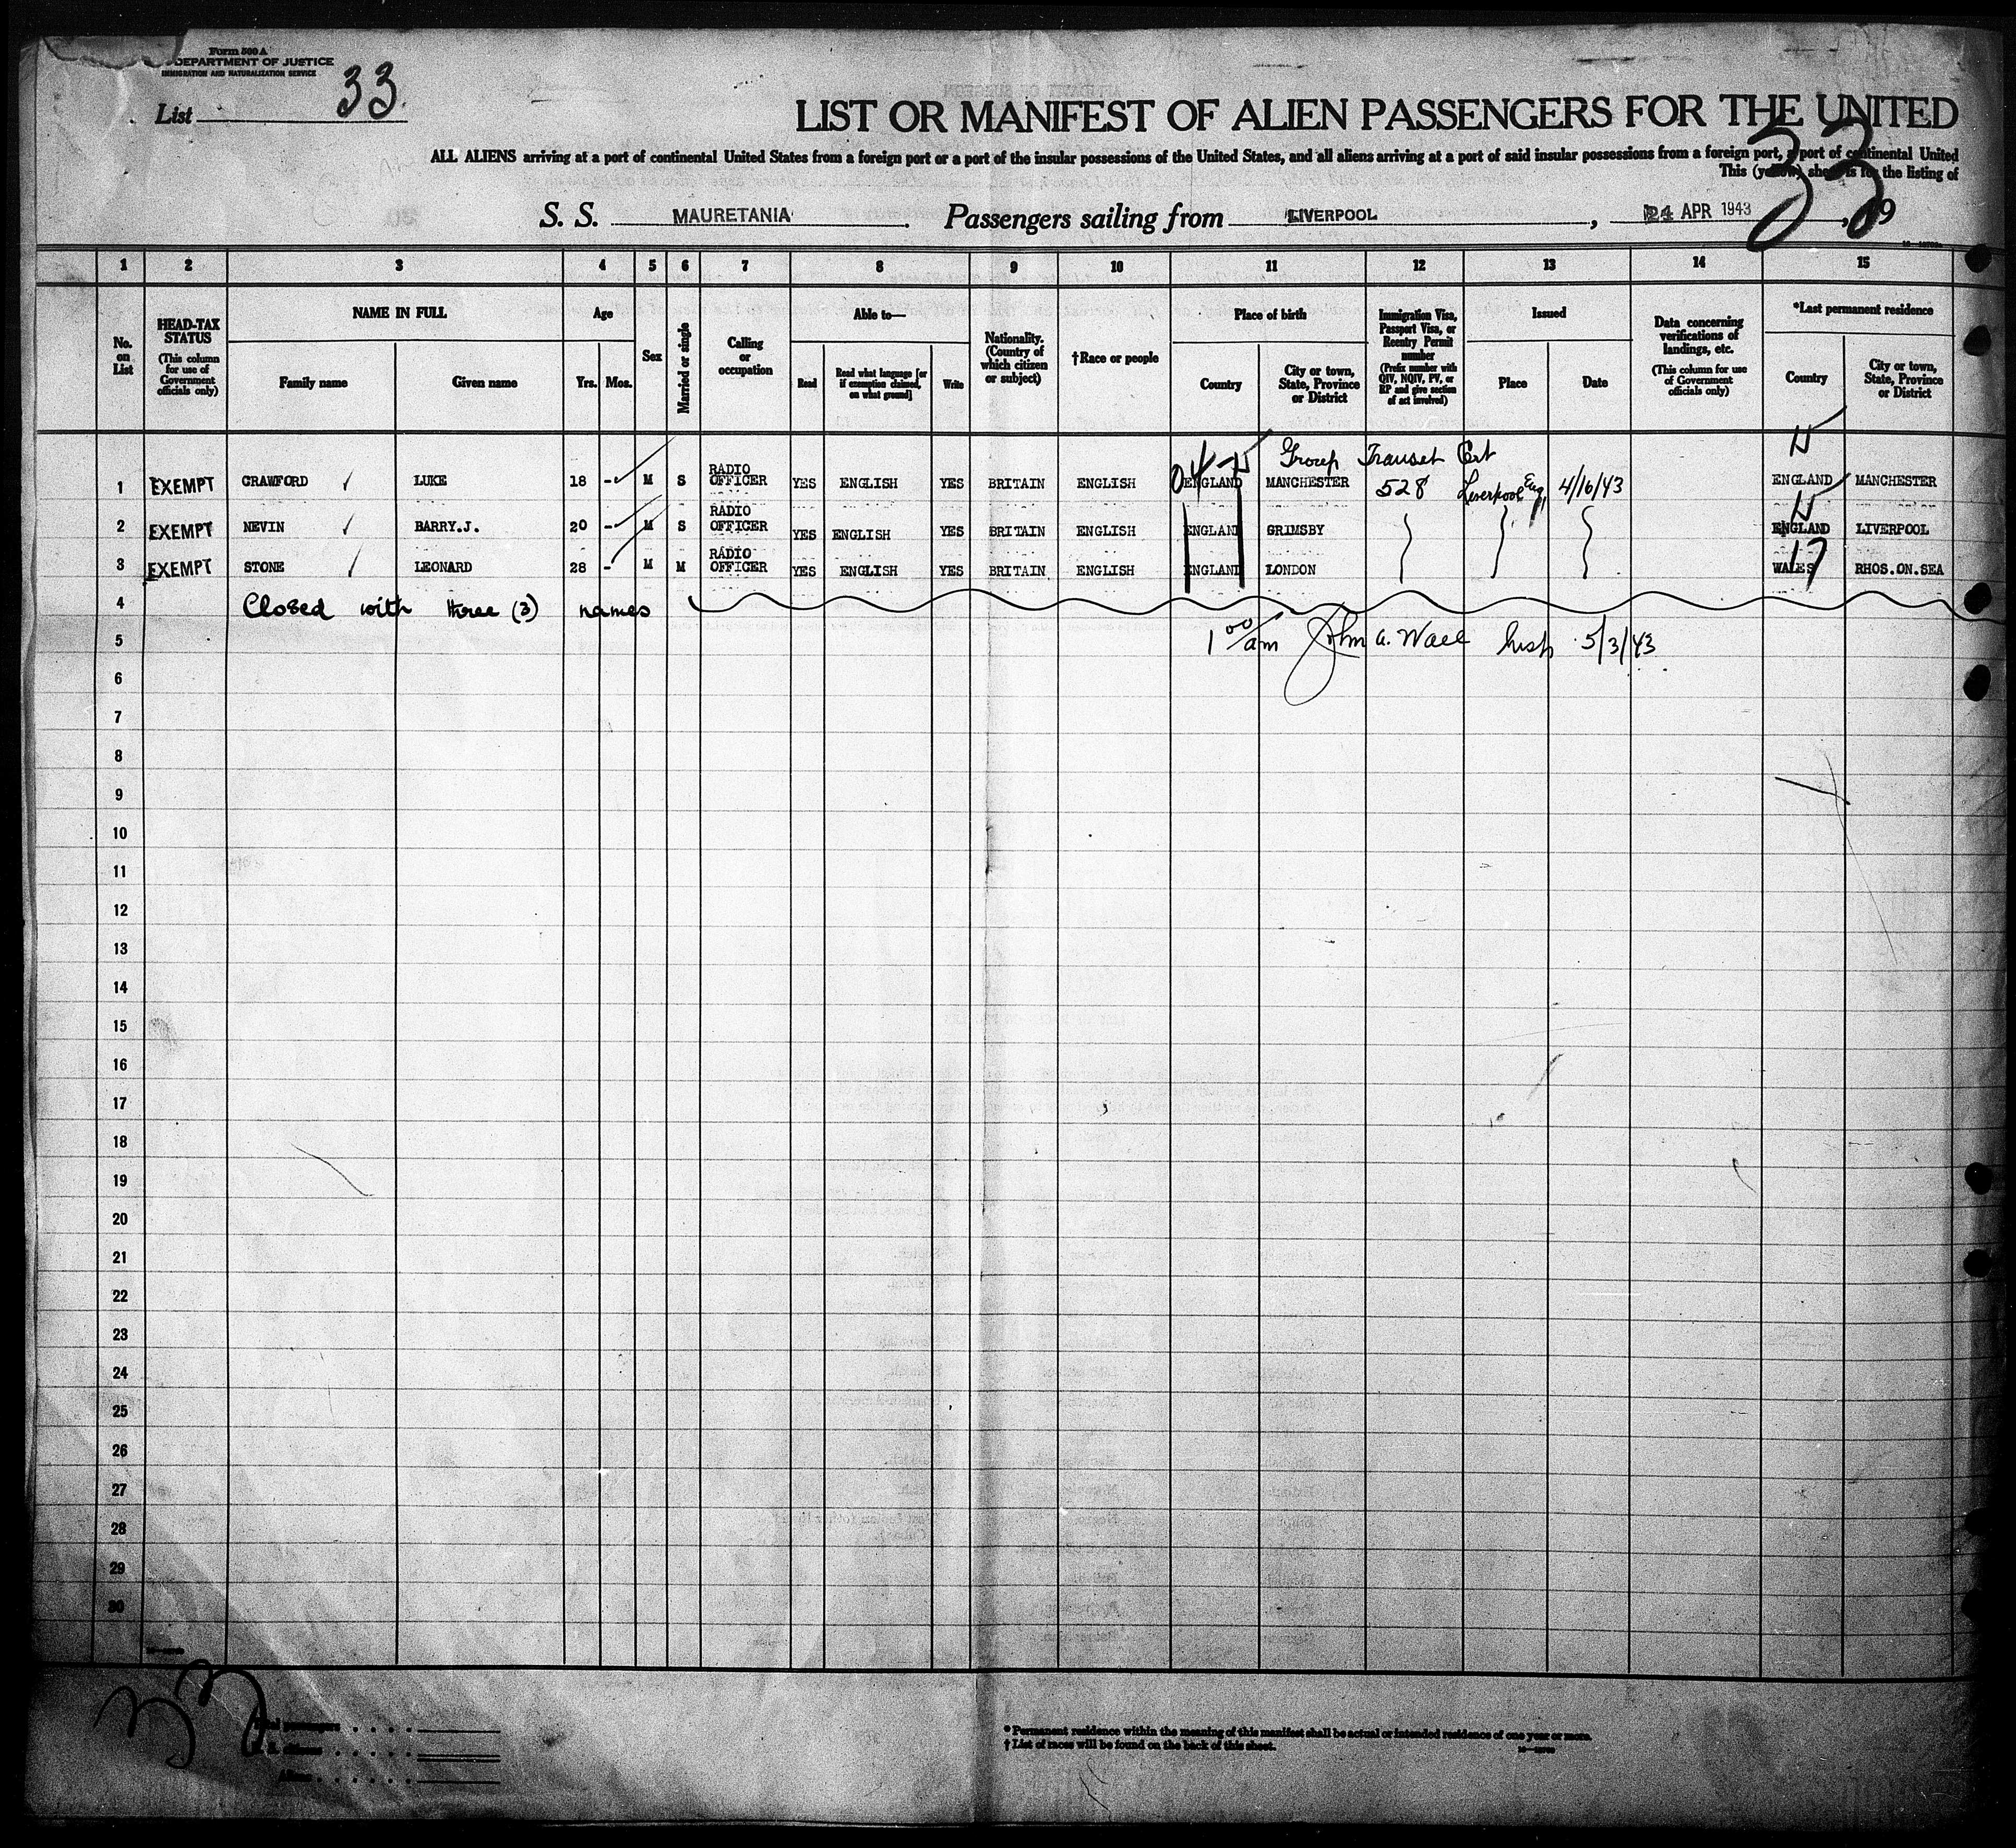 Form 500 A
DEPARTMENT OF JUSTICE
IMMIGRATION AND NATURALIZATION SERVICE
List 33
LIST OR MANIFEST OF ALIEN PASSENGERS FOR THE UNITED
ALL ALIENS arriving at a port of continental United States from a foreign port or a port of the insular possessions of the United States, and all aliens arriving at a port of said insular possessions from a foreign port, a port of continental United
This (yellow) sheet is for the listing of
33
S. S. MAURETANIA. Passengers sailing from LIVERPOOL, 24 APR 1943, 19
1 2 3 4 5 6 7 8 9 10 11 12 13 14 15
No. on List
HEAD-TAX STATUS (This column for use of Government officials only)
NAME IN FULL
Family name Given name
Age
Yrs. Mos.
Sex
Married or single
Calling or occupation
Able to—
Read
Read what language [or if exemption claimed, on what ground]
Write
Nationality. (Country of which citizen or subject)
†Race or people
Place of birth
Country
City or town, State, Province or District
Immigration Visa, Passport Visa, or Reentry Permit number (Prefix number with QIV, NQIV, PV, or RP and give section of act involved)
Issued
Place Date
Data concerning verifications of landings, etc. (This column for use of Government officials only)
*Last permanent residence
Country
City or town, State, Province or District
Group Transit Cert
1 EXEMPT CRAWFORD LUKE 18 - M S RADIO OFFICER YES ENGLISH YES BRITAIN ENGLISH ENGLAND MANCHESTER 528 Liverpool Eng 4/16/43 ENGLAND MANCHESTER
2 EXEMPT NEVIN BARRY.J. 20 - M S RADIO OFFICER YES ENGLISH YES BRITAIN ENGLISH ENGLAND GRIMSBY ENGLAND LIVERPOOL
3 EXEMPT STONE LEONARD 28 - M M RADIO OFFICER YES ENGLISH YES BRITAIN ENGLISH ENGLAND LONDON WALES 17 RHOS.ON.SEA
4 Closed with three (3) names
5 1 00 am John A. Wall Insp 5/3/43
6
7
8
9
10
11
12
13
14
15
16
17
18
19
20
21
22
23
24
25
26
27
28
29
30
passengers
Aliens
* Permanent residence within the meaning of this manifest shall be actual or intended residence of one year or more.
† List of races will be found on the back of this sheet.